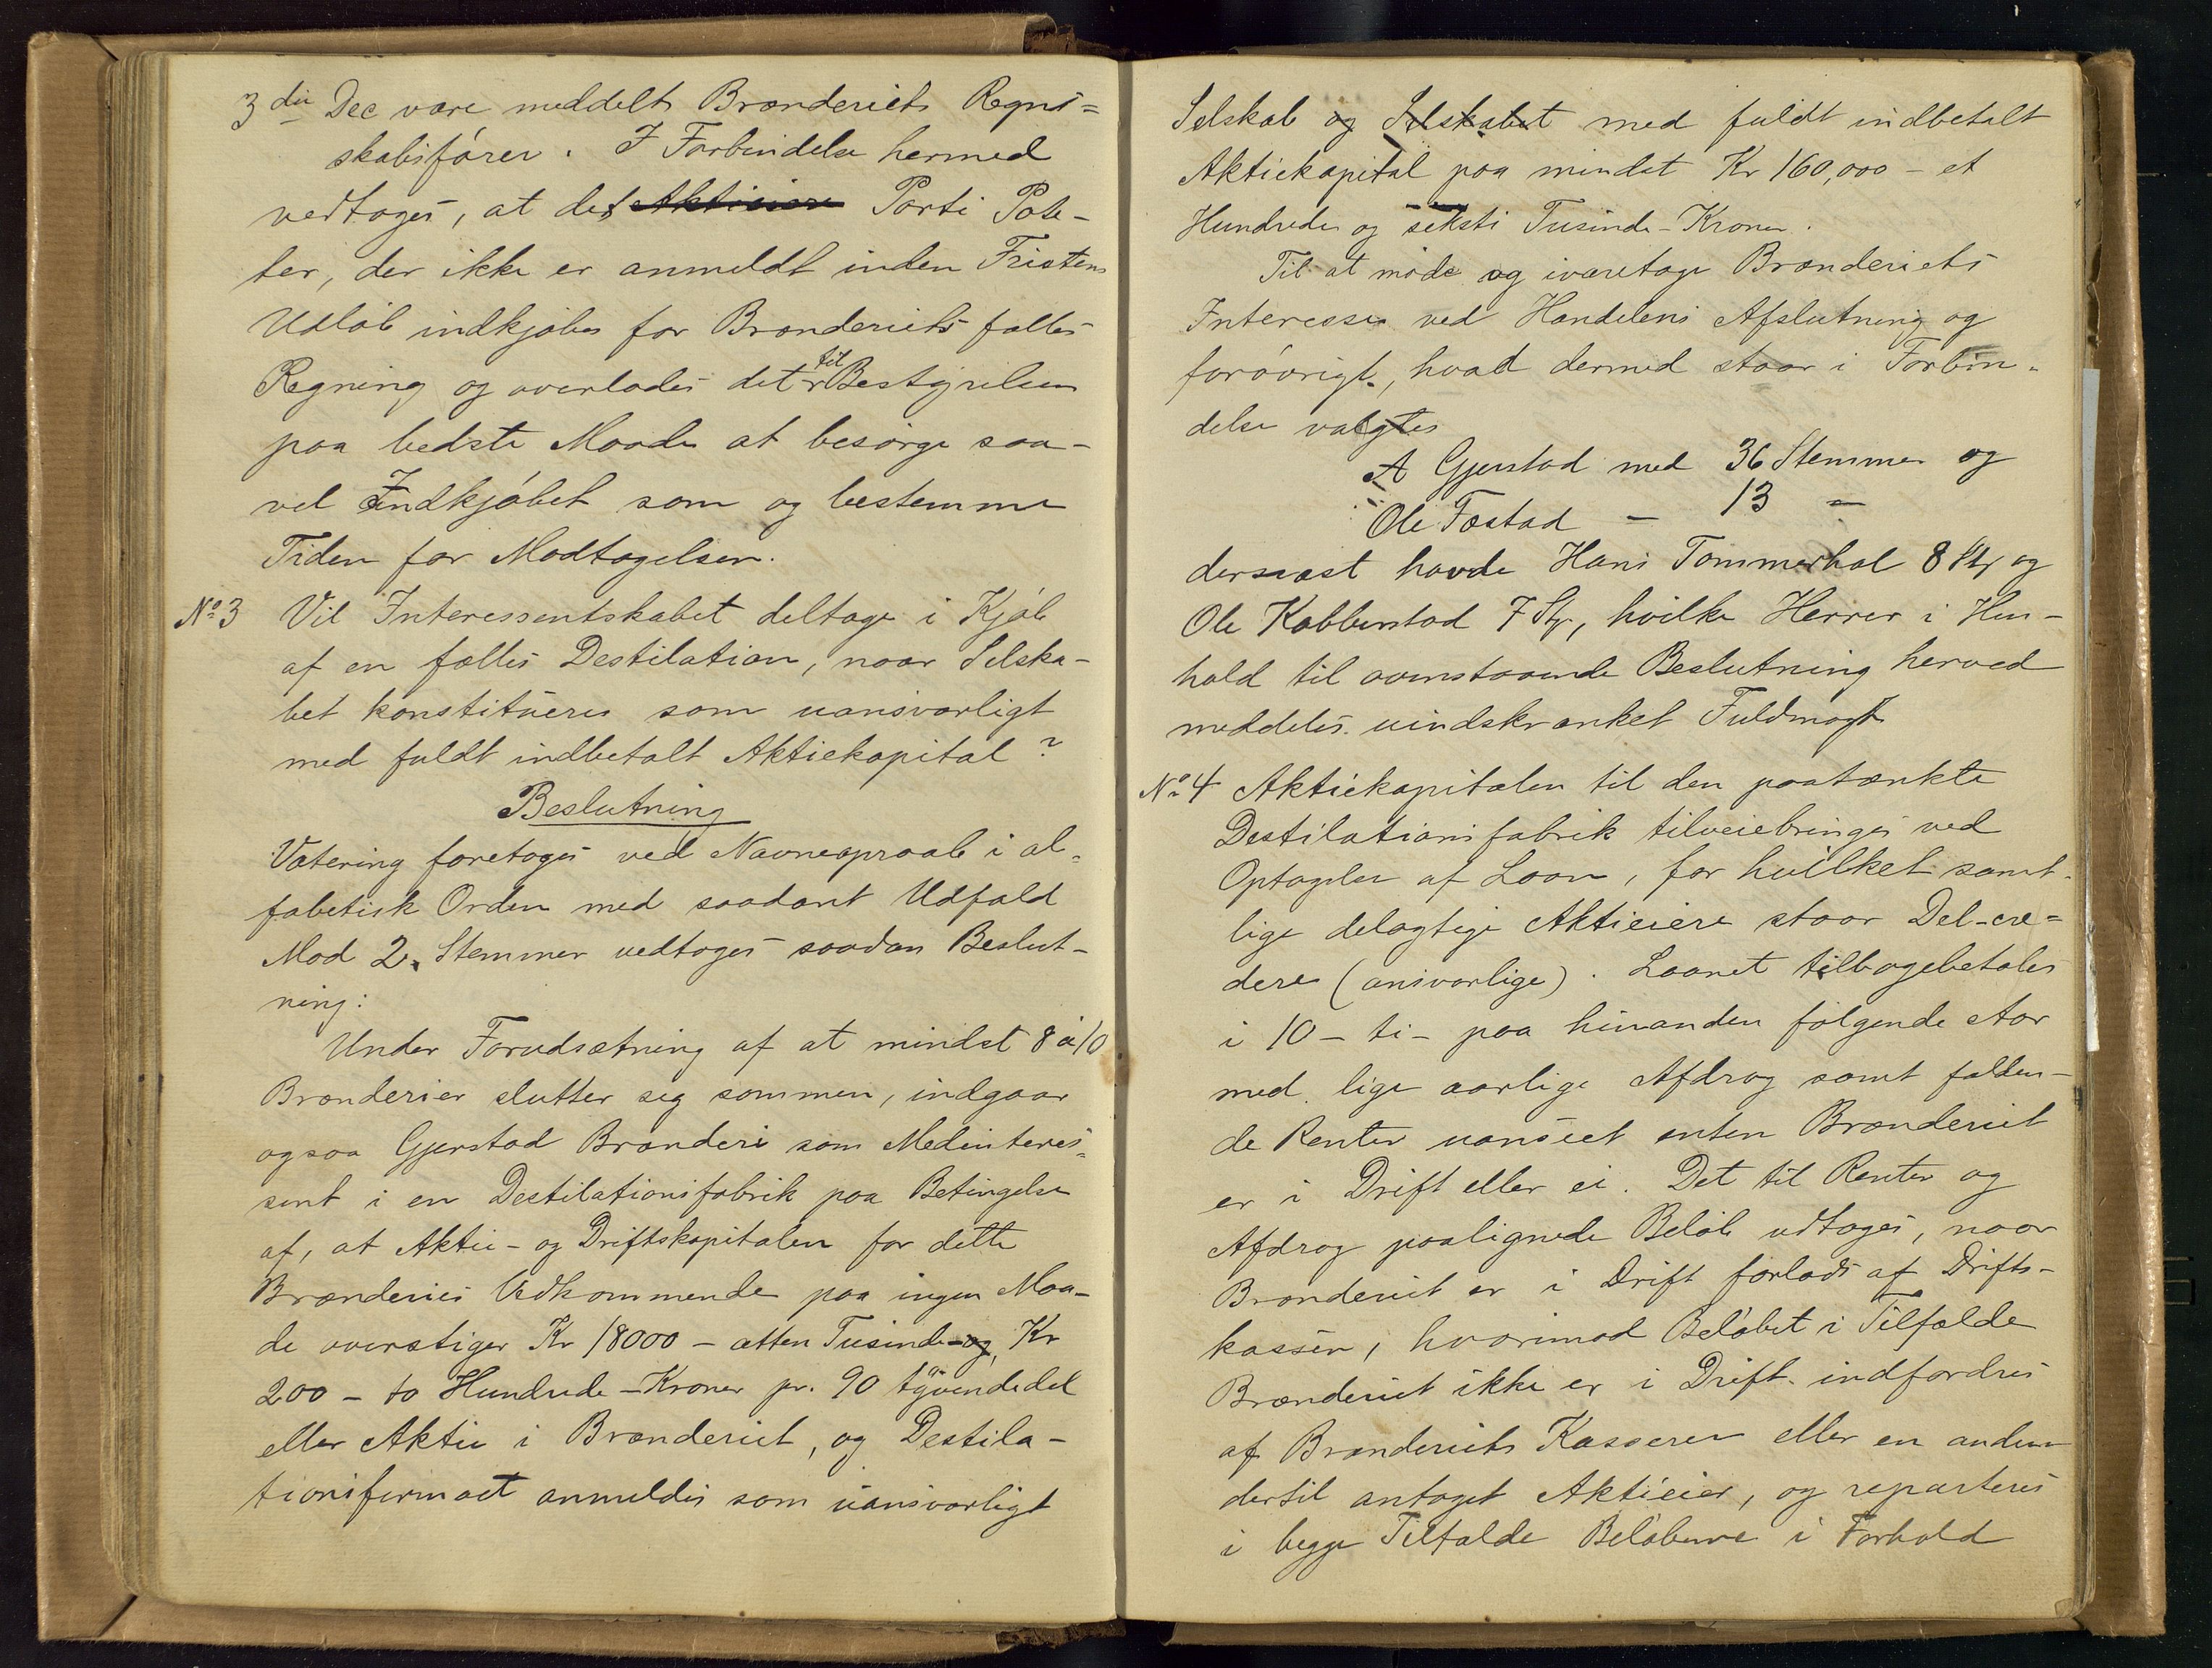 3die Dec være meddelt Brænderiets Regn-
skabsfører. I Forbindelse hermed
vedtoges, at det Aktieiere Parti Pote-
ter, der ikke er anmeldt inden Fristens
Udløb indkjøbes for Brænderiets fælles
Regning og overlades det til Bestyrelsen
paa bedste Maade at besørge saa-
vel Indkjøbet som og bestemme
Tiden for Modtagelsen.
No 3 Vil Interessentskabet deltage i Kjøb
af en fælles Destilation, naar Selska-
bet konstitueres som uansvarligt
med fuldt indbetalt Aktiekapital?
Beslutning
Votering foretoges ved Navneopraab i al-
fabetisk Orden med saadant Udfald
Mod 2 Stemmer vedtoges saadan Beslut-
ning:
Under Forudsætning af at mindst 8 à 10
Brænderier slutter sig sammen, indgaar
ogsaa Gjerstad Brænderi som Medinteres-
sent i en Destilationsfabrik paa Betingelse
af, at Aktie- og Driftskapitalen for dette
Brænderies Vedkommende paa ingen Maa-
de overstiger Kr 18000 - atten Tusinde - og, Kr
200 - to Hundrede - Kroner pr. 90 tyvendedel
eller Aktie i Brænderiet, og Destila-
tionsfirmaet anmeldes som uansvarligt
Selskab og Selskabet med fuldt indbetalt
Aktiekapital paa mindst Kr 160,000 - et
Hundrede og seksti Tusinde - Kroner.
Til at møde og ivaretage Brænderiets
Interesser ved Handelens Afslutning og
forøvrigt, hvad dermed staar i Forbin-
delse valgtes
A Gjerstad med 36 Stemmer og
Ole Fostad - 13 -
dernæst havde Hans Tømmerhol 8 St, og
Ole Kabberstad 7 St, hvilke Herrer i Hen-
hold til ovenstaaende Beslutning herved
meddeles uindskrænket Fuldmagt
No 4 Aktiekapitalen til den paatænkte
Destilationsfabrik tilveiebringes ved
Optagelse af Laan, for hvilket samt-
lige delagtige Aktieiere staar Del-cre-
dere (ansvarlige). Laanet tilbagebetales
i 10 - ti - paa hinanden følgende Aar
med lige aarlige Afdrag samt falden-
de Renter uanseet enten Brænderiet
er i Drift eller ei. Det til Renter og
Afdrag paalignede Beløb udtages, naar
Brænderiet er i Drift forlods af Drifts-
kassen, hvorimod Beløbet i Tilfælde
Brænderiet ikke er i Drift indfordres
af Brænderiets Kasserer eller en anden
dertil antaget Aktieier, og reparteres
i begge Tilfælde Beløbene i Forhold